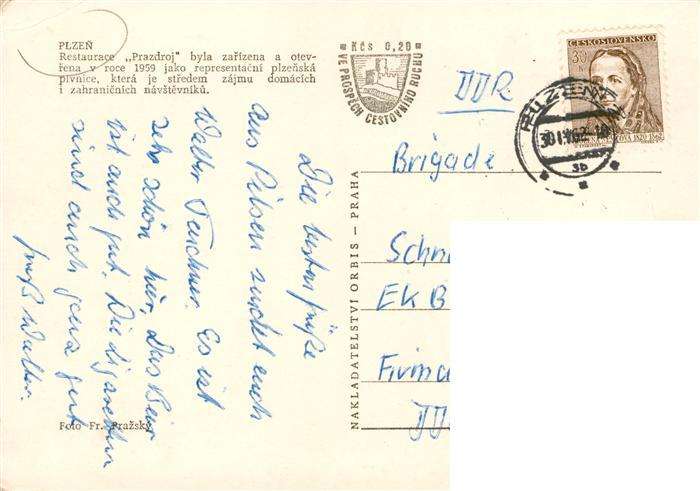 PLZEŇ
Restaurace „Prazdroj" byla zařízena a otev-
řena v roce 1959 jako representační plzeňská
pivnice, která je středem zájmu domácích
i zahraničních návštěvníků.
Kčs 0,20
VE PROSPĚCH CESTOVNÍHO RUCHU
ČESKOSLOVENSKO
30
PLZEŇ
3b
DDR
Brigade
Schm
EK B
Firma
DD
NAKLADATELSTVÍ ORBIS — PRAHA
Die besten Grüße
aus Pilsen sendet euch
Walter Teichner. Es ist
sehr schön hier, das Bier
ist auch gut. Die Zigaretten
sind auch ganz gut
Gruß Walter.
Foto Fr. Pražský